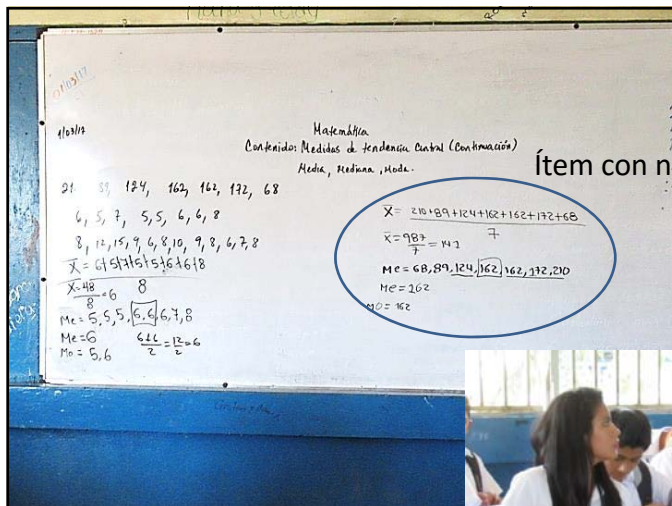 01/03/17
1/03/17
Matemática
Contenido: Medidas de tendencia Central (Continuación)
Media, Mediana, Moda.
21 89, 124, 162, 162, 172, 68
6, 5, 7, 5, 5, 6, 6, 8
8, 12, 15, 9, 6, 8, 10, 9, 8, 6, 7, 8
X̄ = 6+5+7+5+5+6+6+8
8
X̄ = 48
8 = 6
Me = 5, 5, 5, 6, 6, 6, 7, 8
Me = 6
6+6
2 = 12
2 = 6
Mo = 5, 6
Ítem con n
X̄ = 210+89+124+162+162+172+68
7
X̄ = 987
7 = 141
Me = 68, 89, 124, 162, 162, 172, 210
Me = 162
Mo = 162